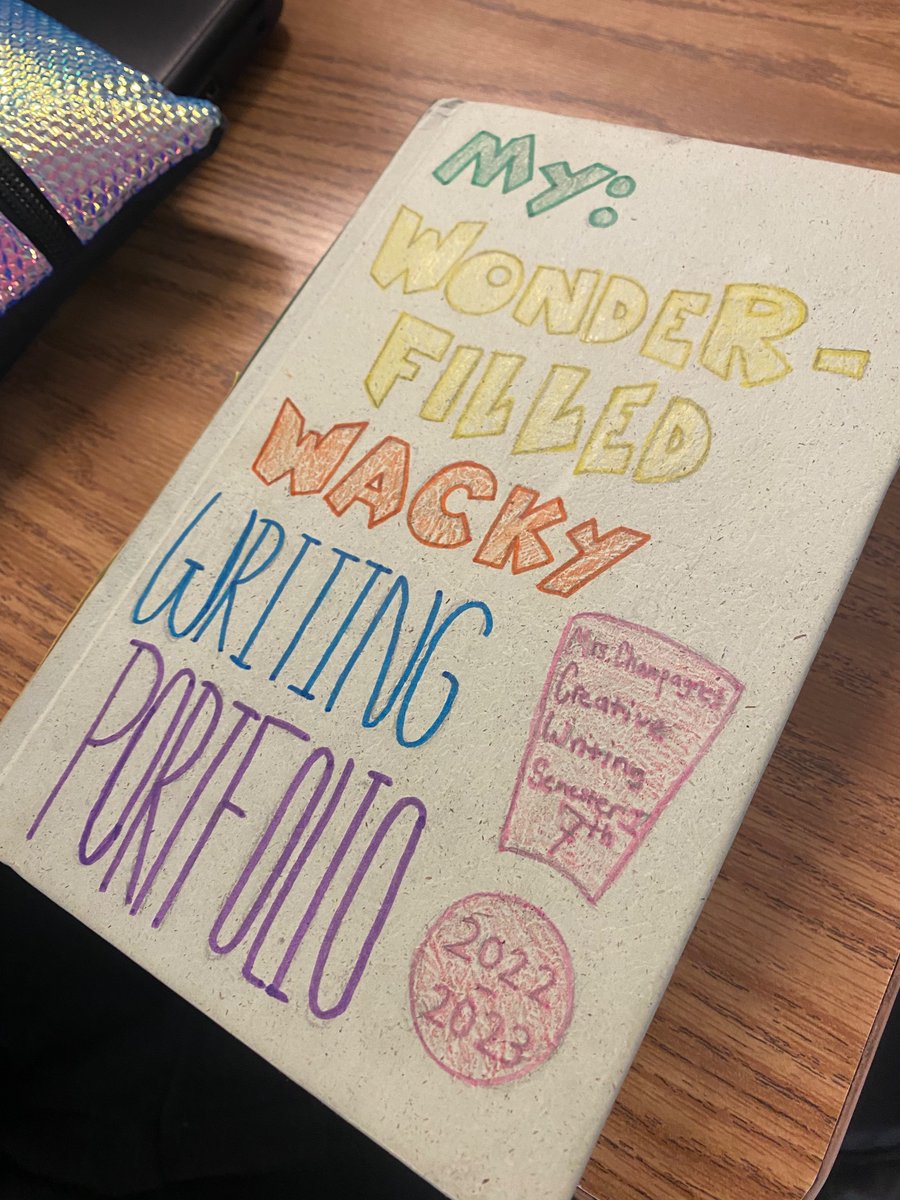 MY:
WONDER-
FILLED
WACKY
WRITING
PORTFOLIO
Mrs. Champagne's
Creative
Writing
Semester
7th
2022
-
2023